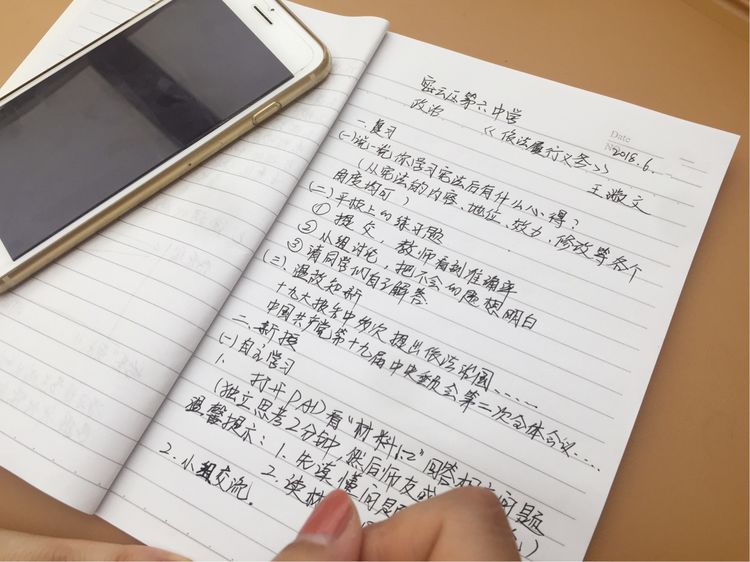 密云区第六中学
Date
政治 《依法履行义务》 2018.6.
王淑文
一.复习
(一)说一说你学习宪法后有什么心得?
(从宪法的内容、地位、效力、修改等各个
角度均可)
(二)平板上的练习题
① 提交,教师看到准确率
② 小组讨论,把不会的题想明白
③ 请同学们自己解答
(三)温故知新
十九大报告中多次提出依法治国......
中国共产党第十九届中央委员会第二次全体会议....
二.新授
(一)自主学习
1.
打开PAD看"材料1.2"回答相应问题
(独立思考2分钟,然后师友
温馨提示:1.先读懂问题
2.读材
2.小组交流.